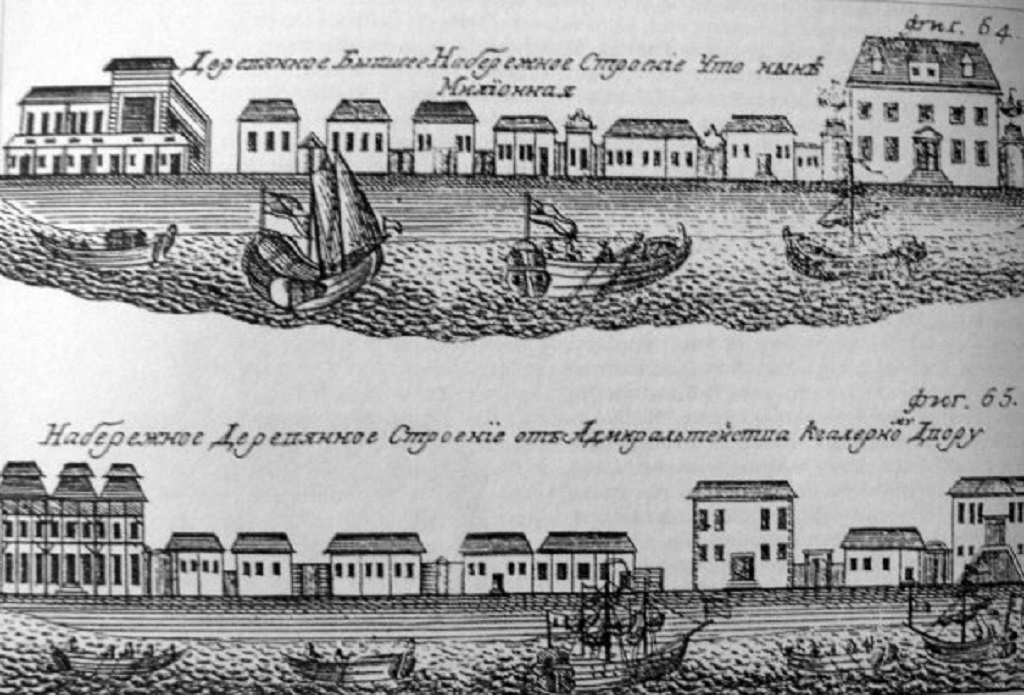 фиг. 64.
Деревянное Бывшее Набережное Строение Что нынѣ
Милїонная
фиг. 65.
Набережное Деревянное Строенїе отъ Адмиральтейства Кгалерномȣ Двору